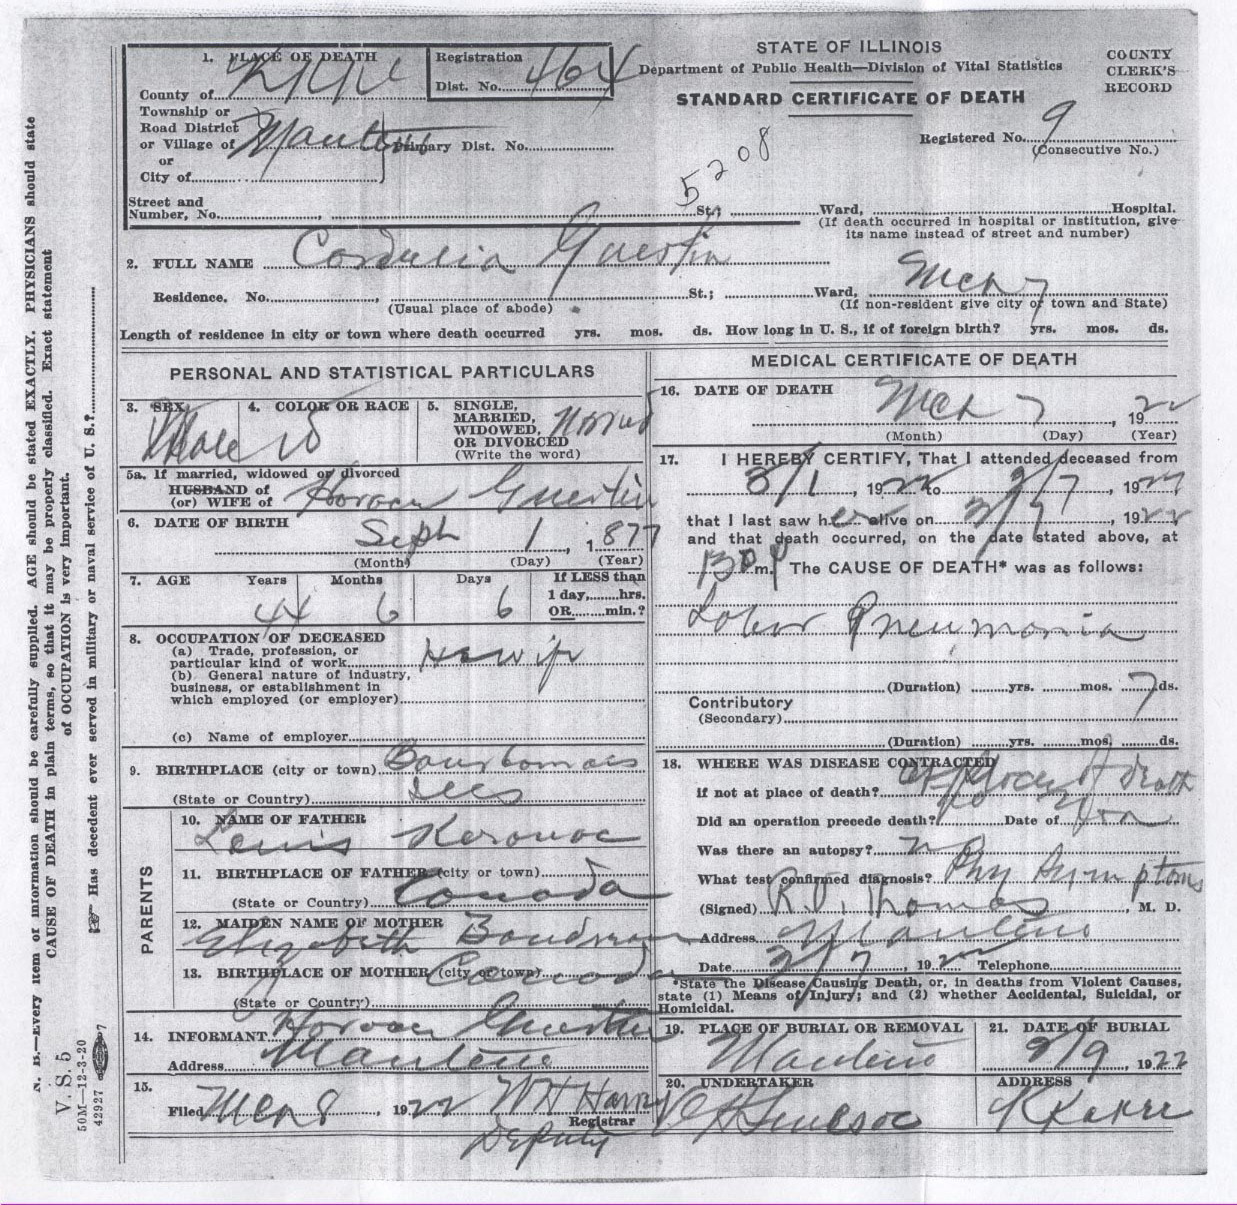 STATE OF ILLINOIS
Department of Public Health—Division of Vital Statistics
STANDARD CERTIFICATE OF DEATH
COUNTY
CLERK'S
RECORD
1. PLACE OF DEATH
County of
Registration
Dist. No. 464
Township or
Road District
or Village of Manteno
or
City of
Primary Dist. No.
Registered No. 9
(Consecutive No.)
5208
Street and
Number, No. , St.; Ward, Hospital.
(If death occurred in hospital or institution, give
its name instead of street and number)
2. FULL NAME Cordelia Guertin
Residence. No. , St.; Ward, Mch 7
(Usual place of abode) (If non-resident give city or town and State)
Length of residence in city or town where death occurred yrs. mos. ds. How long in U. S., if of foreign birth? yrs. mos. ds.
PERSONAL AND STATISTICAL PARTICULARS
3. SEX
4. COLOR OR RACE W
5. SINGLE,
MARRIED,
WIDOWED,
OR DIVORCED
(Write the word)
5a. If married, widowed or divorced
HUSBAND of
(or) WIFE of Guertin
6. DATE OF BIRTH
Seph 1, 1877
(Month) (Day) (Year)
7. AGE Years Months Days If LESS than
44 6 6 1 day,......hrs.
OR......min.?
8. OCCUPATION OF DECEASED
(a) Trade, profession, or
particular kind of work Hswif
(b) General nature of industry,
business, or establishment in
which employed (or employer)
(c) Name of employer
9. BIRTHPLACE (city or town) Bourbonnais
(State or Country) Ills
PARENTS
10. NAME OF FATHER
Louis Kerouac
11. BIRTHPLACE OF FATHER (city or town)
(State or Country) Canada
12. MAIDEN NAME OF MOTHER
Elizabeth
13. BIRTHPLACE OF MOTHER (city or town) Canada
(State or Country)
14. INFORMANT Guertin
Address Manteno
15.
Filed Mch 8, 1922 W H
Registrar
Deputy
MEDICAL CERTIFICATE OF DEATH
16. DATE OF DEATH
Mch 7, 1922
(Month) (Day) (Year)
17. I HEREBY CERTIFY, That I attended deceased from
3/1, 1922 to 3/7, 1922
that I last saw her alive on 3/7, 1922
and that death occurred, on the date stated above, at
130 P m. The CAUSE OF DEATH* was as follows:
Lobar Pneumonia
(Duration) yrs. mos. 7 ds.
Contributory
(Secondary)
(Duration) yrs. mos. ds.
18. WHERE WAS DISEASE CONTRACTED
if not at place of death? at place of death
Did an operation precede death? no Date of
Was there an autopsy? no
What test confirmed diagnosis? Phy Symptoms
(Signed) R. J. Thomas, M. D.
Address Manteno
Date 3/7, 1922 Telephone
*State the Disease Causing Death, or, in deaths from Violent Causes,
state (1) Means of Injury; and (2) whether Accidental, Suicidal, or
Homicidal.
19. PLACE OF BURIAL OR REMOVAL
Manteno
21. DATE OF BURIAL
3/9, 1922
20. UNDERTAKER
ADDRESS
N. B.—Every item of information should be carefully supplied. AGE should be stated EXACTLY. PHYSICIANS should state
CAUSE OF DEATH in plain terms, so that it may be properly classified. Exact statement
of OCCUPATION is very important.
☞ Has decedent ever served in military or naval service of U. S.?
V. S. 5
50M—12-3-20
42927 7